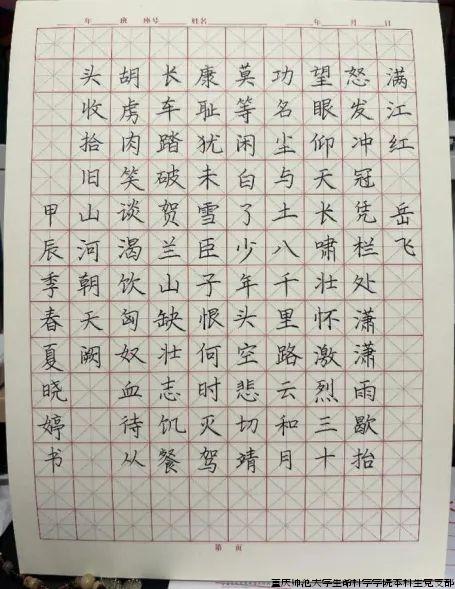 年 班 座号 姓名 年 月 日
满江红 岳飞
怒发冲冠凭栏处潇潇雨歇抬
望眼仰天长啸壮怀激烈三十
功名尘与土八千里路云和月
莫等闲白了少年头空悲切靖
康耻犹未雪臣子恨何时灭驾
长车踏破贺兰山缺壮志饥餐
胡虏肉笑谈渴饮匈奴血待从
头收拾旧山河朝天阙
甲辰季春夏晓婷书
第 页
重庆师范大学生命科学学院本科生党支部